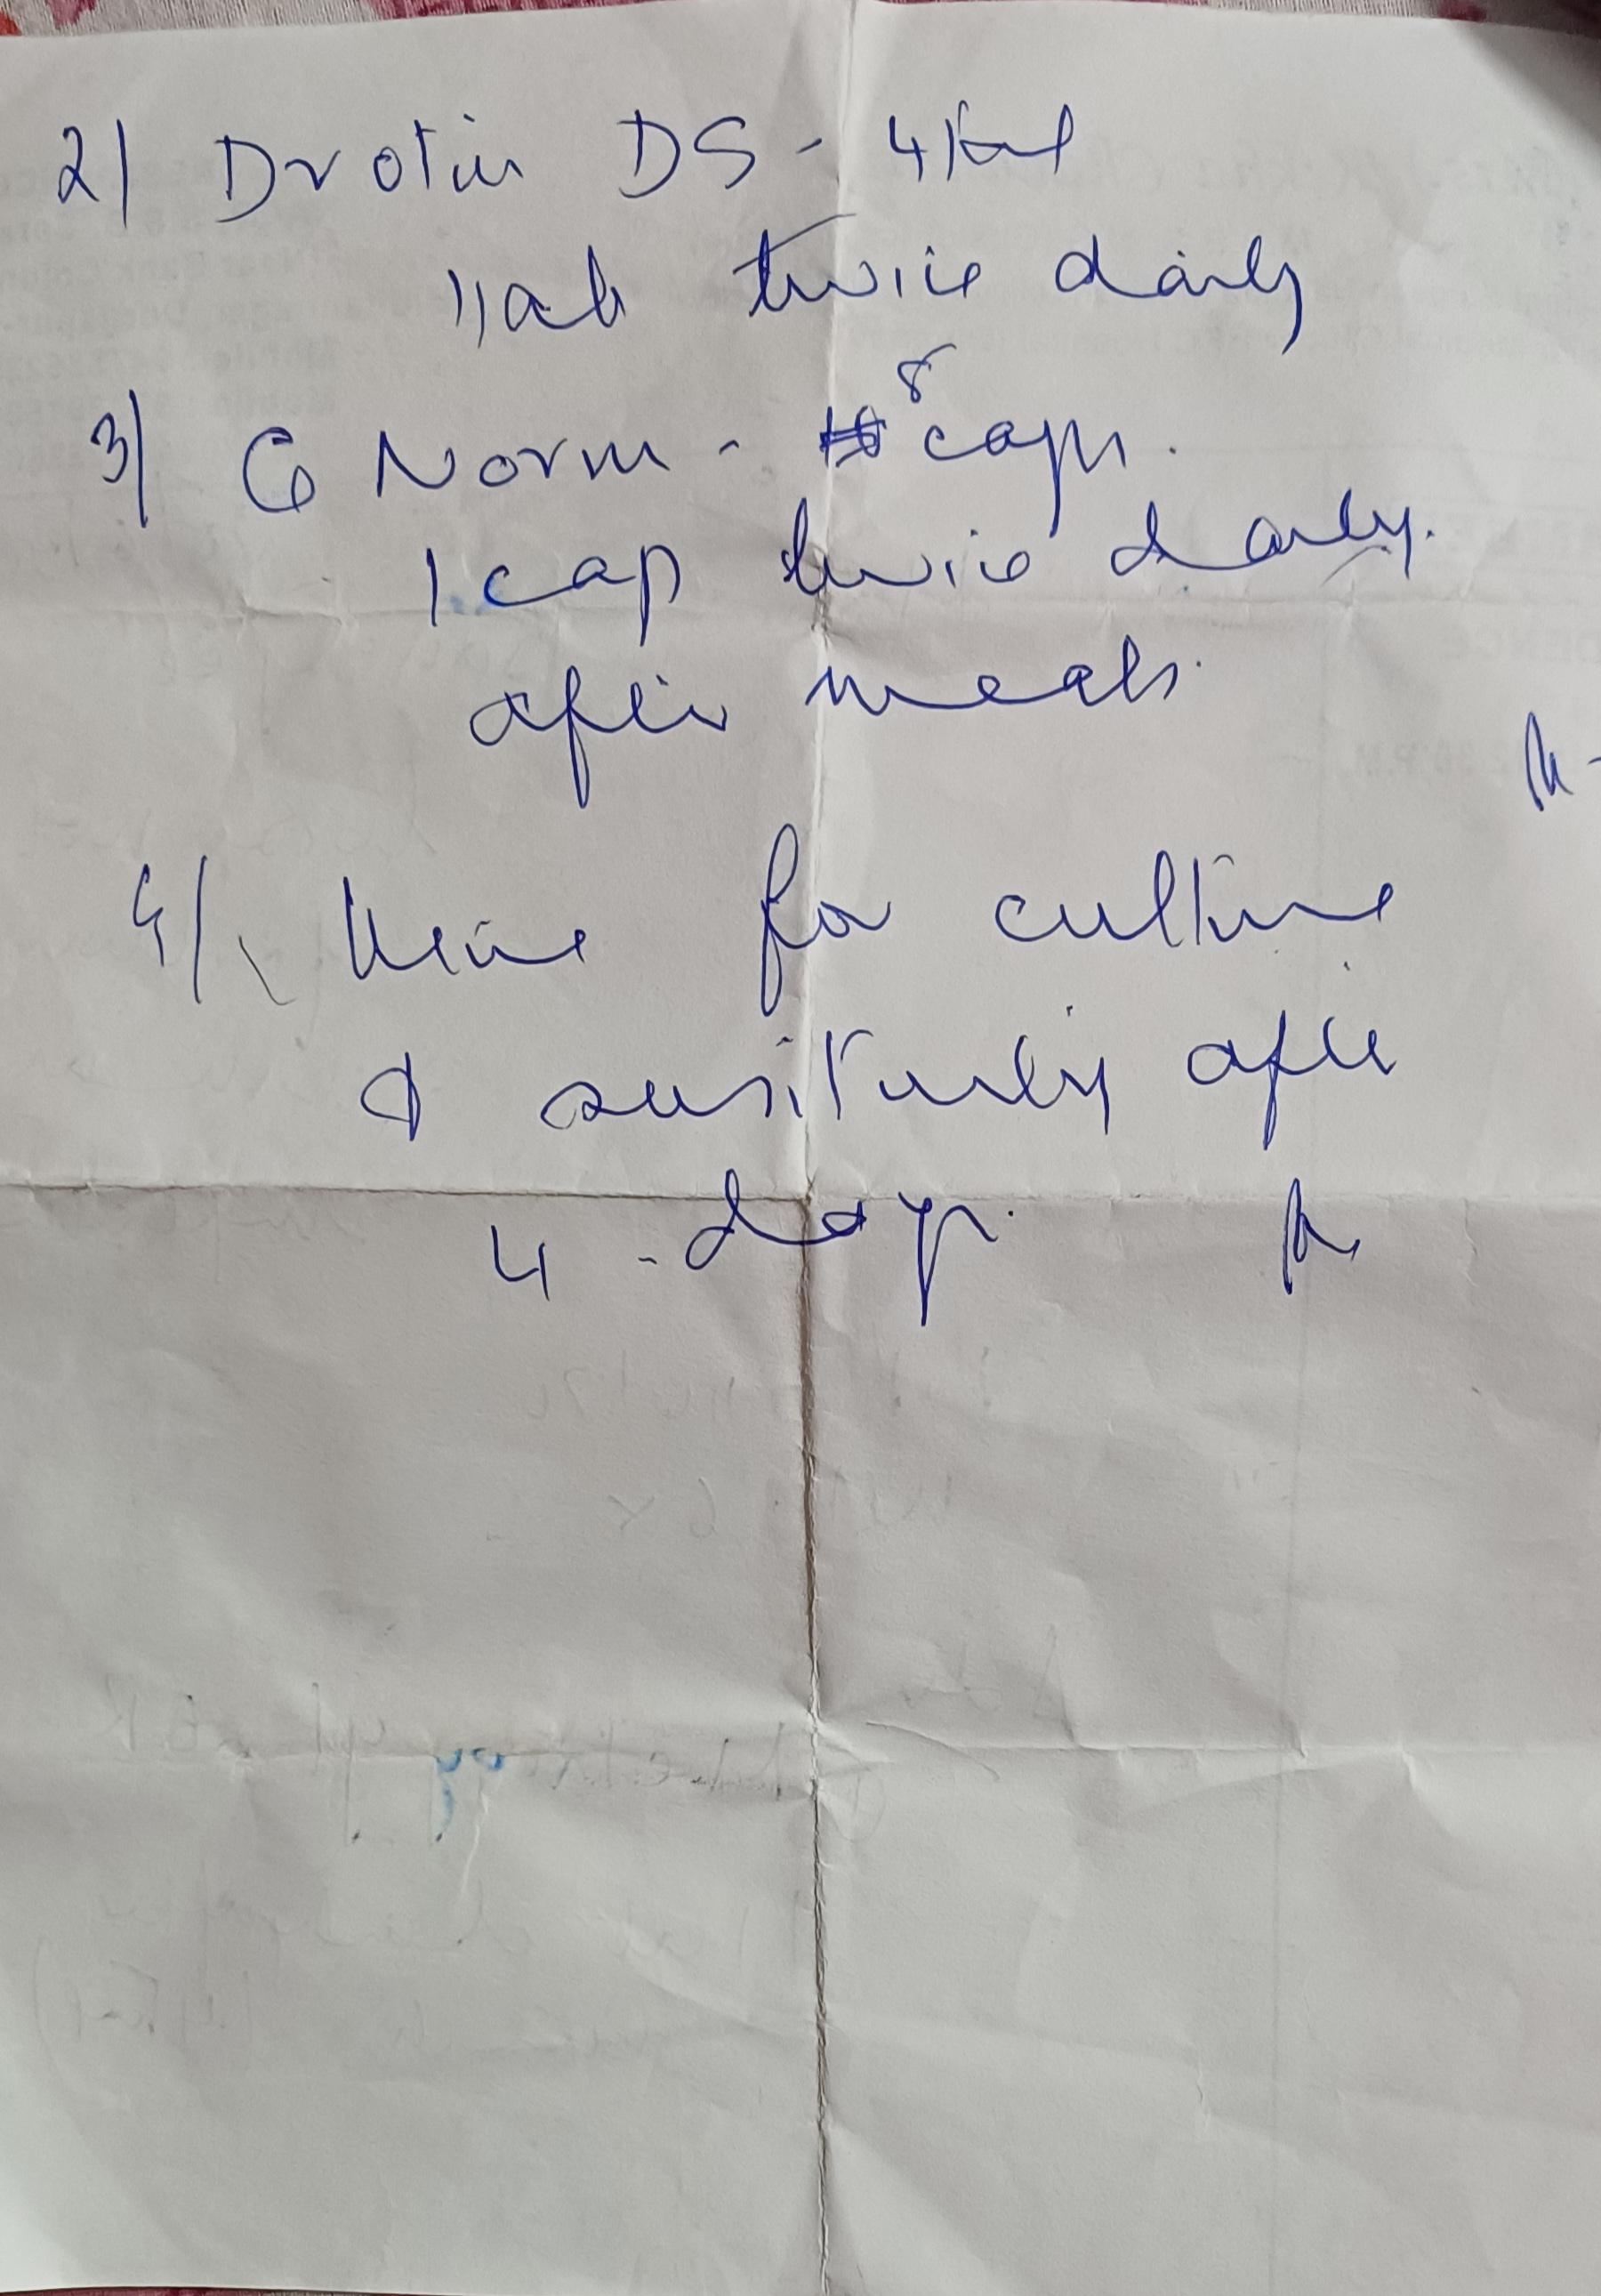 2) Drotin DS - 4 tab
1 tab twice daily
3) G Norm - 8 caps.
1 cap twice daily.
after meals.
4) Urine for culture
& sensitivity after
4 - days.